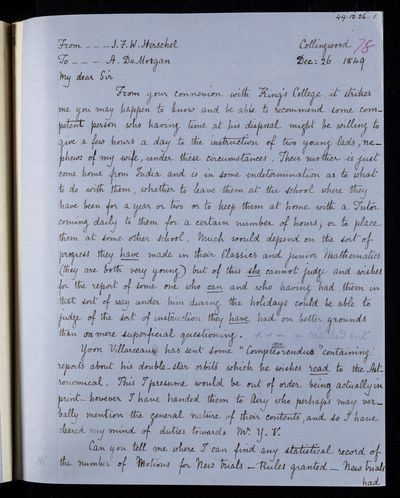 49.12.26. 1
From - - - J. F. W. Herschel Collingwood 78
To - - - - A. De Morgan Dec: 26 1849
My dear Sir
From your connexion with King's College it strikes
me you may happen to know and be able to recommend some com-
petent person who having time at his disposal might be willing to
give a few hours a day to the instruction of two young lads, ne-
phews of my wife, under these circumstances. Their mother is just
come home from India and is in some indetermination as to what
to do with them, whether to leave them at the school where they
have been for a year or two or to keep them at home with a Tutor
coming daily to them for a certain number of hours; or to place
them at some other school. Much would depend on the sort of
progress they have made in their Classics and junior Mathematics
(they are both very young) but of this she cannot judge and wishes
for the report of some one who can and who having had them in
that sort of way under him during the holidays could be able to
judge of the sort of instruction they have had on better grounds
than on mere superficial questioning. x x - x
Yvon Villarceaux has sent some "Comptes rendus" containing
reports about his double-star orbits which he wishes read to the Ast-
ronomical. This I presume would be out of order being actually in
print - however I have handed them to Airy who perhaps may ver-
bally mention the general nature of their contents, and so I have
cleared my mind of duties towards Mr. Y. V.
Can you tell me where I can find any statistical record of
the number of Motions for New trials - Rules granted - New trials
had